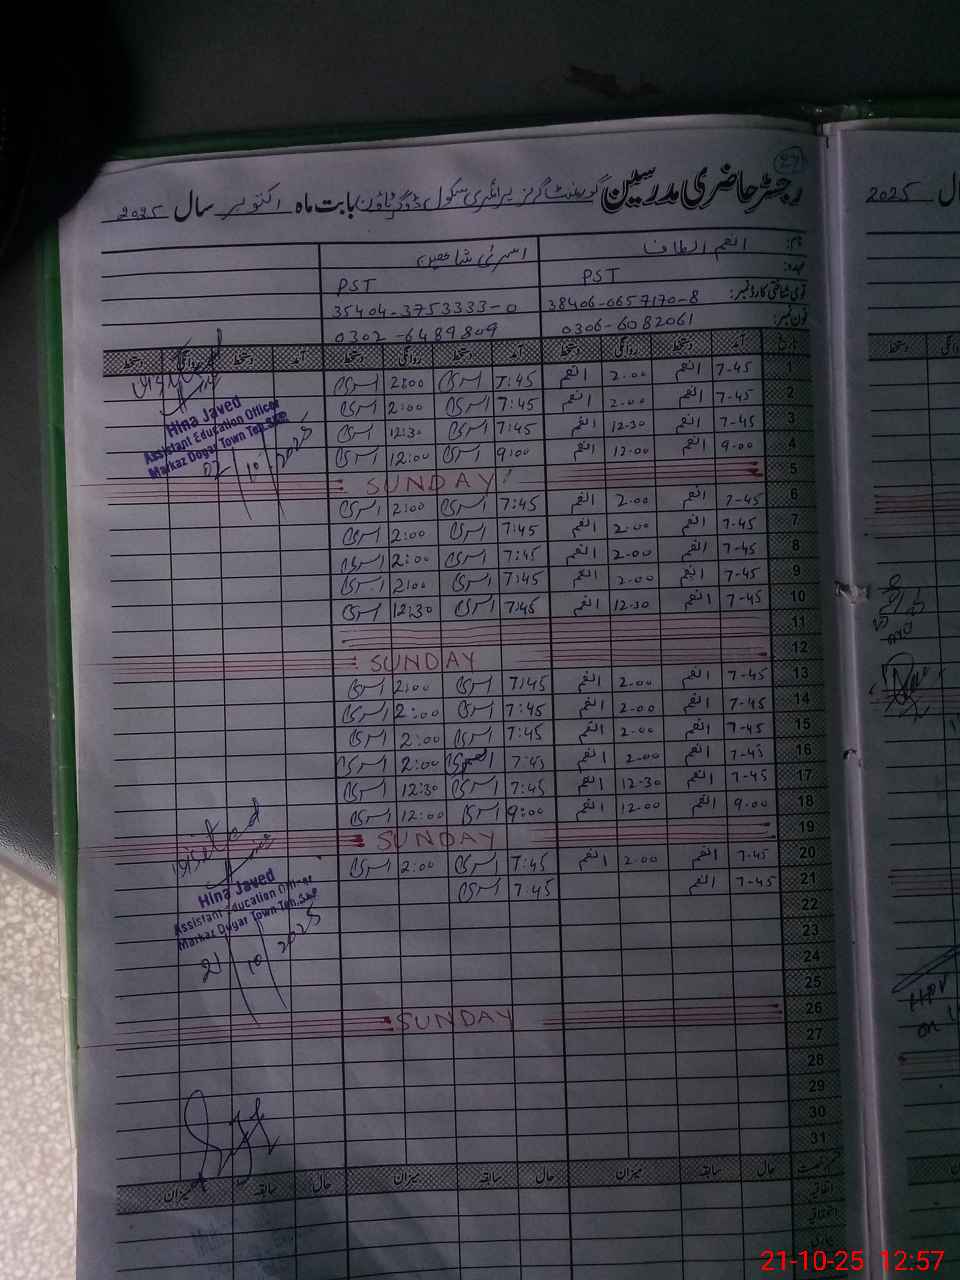 29
رجسٹر حاضری مدرسین گورنمنٹ گرلز پرائمری سکول ڈوگر ٹاؤن بابت ماہ اکتوبر سال 2025
نام: انعم الطاف
عہدہ: PST PST
قومی شناختی کارڈ نمبر: 38406-0657170-8 35404-3753333-0
فون نمبر: 0306-6082061 0302-6489809
تاریخ آمد دستخط روانگی دستخط آمد دستخط روانگی دستخط آمد دستخط روانگی دستخط
1 7-45 انعم 2.00 انعم 7:45 اسریٰ 2:00 اسریٰ
2 7-45 انعم 2-00 انعم 7:45 اسریٰ 2:00 اسریٰ
3 7-45 انعم 12-30 انعم 7:45 اسریٰ 12:30 اسریٰ
4 9-00 انعم 12-00 انعم 9:00 اسریٰ 12:00 اسریٰ
5 SUNDAY
6 7-45 انعم 2.00 انعم 7:45 اسریٰ 2:00 اسریٰ
7 7-45 انعم 2.00 انعم 7:45 اسریٰ 2:00 اسریٰ
8 7-45 انعم 2-00 انعم 7:45 اسریٰ 2:00 اسریٰ
9 7-45 انعم 2-00 انعم 7:45 اسریٰ 2:00 اسریٰ
10 7-45 انعم 12-30 انعم 7:45 اسریٰ 12:30 اسریٰ
11
12 SUNDAY
13 7-45 انعم 2-00 انعم 7:45 اسریٰ 2:00 اسریٰ
14 7-45 انعم 2.00 انعم 7:45 اسریٰ 2:00 اسریٰ
15 7-45 انعم 2.00 انعم 7:45 اسریٰ 2:00 اسریٰ
16 7-45 انعم 2-00 انعم 7:45 2:00 اسریٰ
17 7-45 انعم 12-30 انعم 7:45 اسریٰ 12:30 اسریٰ
18 9-00 انعم 12-00 انعم 9:00 اسریٰ 12:00 اسریٰ
19 SUNDAY
20 7-45 انعم 2-00 انعم 7:45 اسریٰ 2:00 اسریٰ
21 7-45 انعم 7:45 اسریٰ
22
23
24
25
26 SUNDAY
27
28
29
30
31
حال سابقہ میزان حال سابقہ میزان حال سابقہ میزان
اتفاقیہ
Visited
Hina Javed
Assistant Education Officer
Markaz Dogar Town Teh. SKP
02/10/2025
Visited
Hina Javed
Assistant Education Officer
Markaz Dogar Town Teh. SKP
21/10/2025
2025
HPV
on
21-10-25 12:57